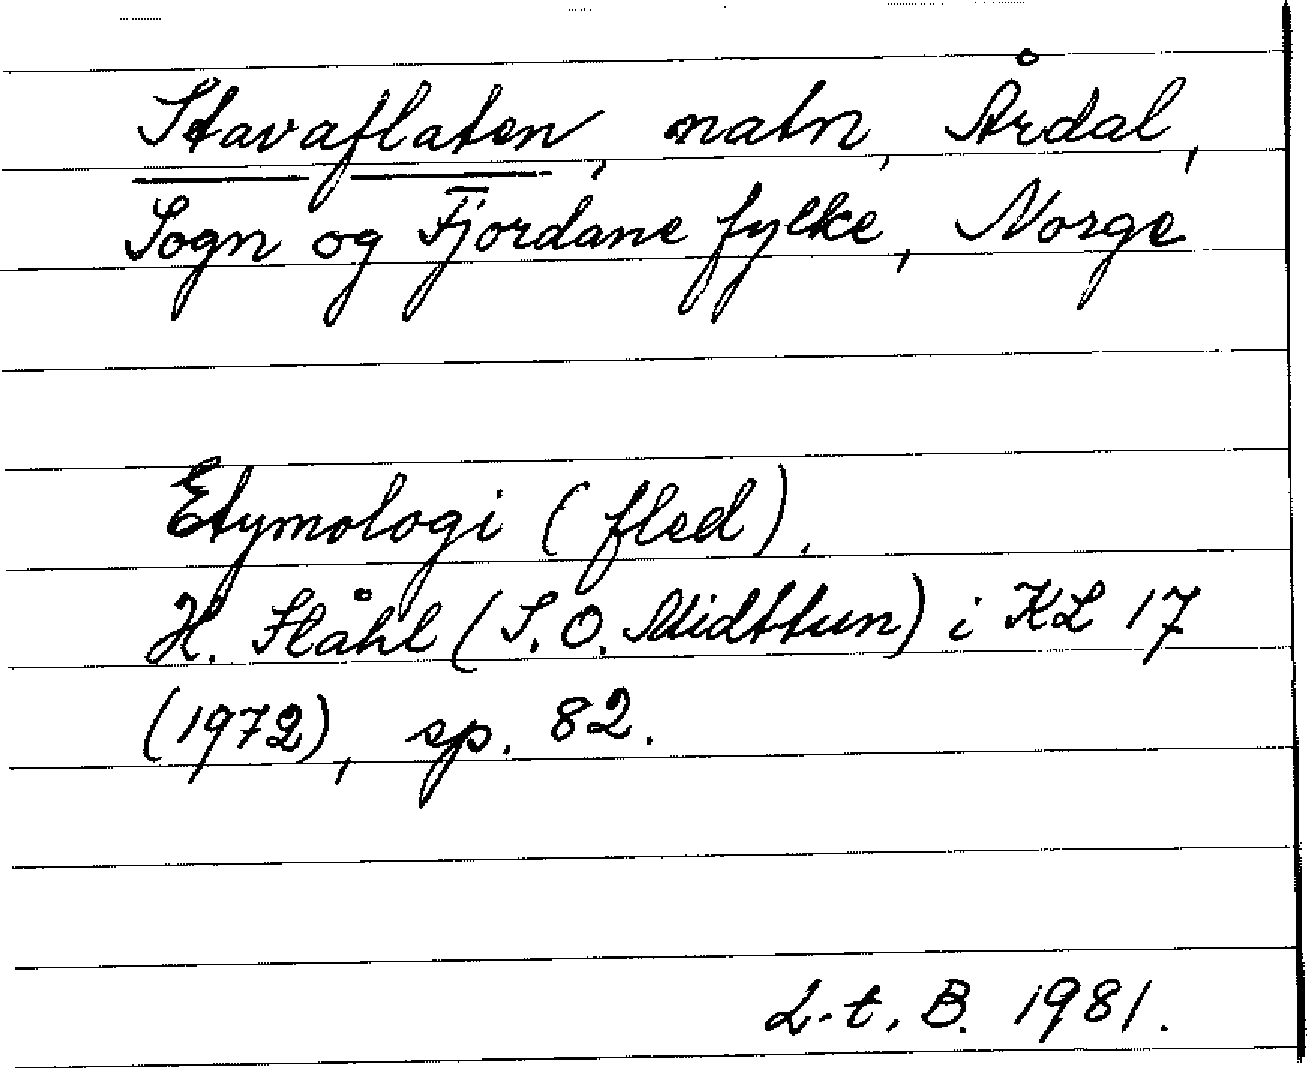 Stavaflaten, natn, Årdal,
Sogn og Fjordane fylke, Norge
Etymologi (fled).
H. Ståhl (S. O. Midttun) i KL 17
(1972), sp. 82.
L. t. B. 1981.